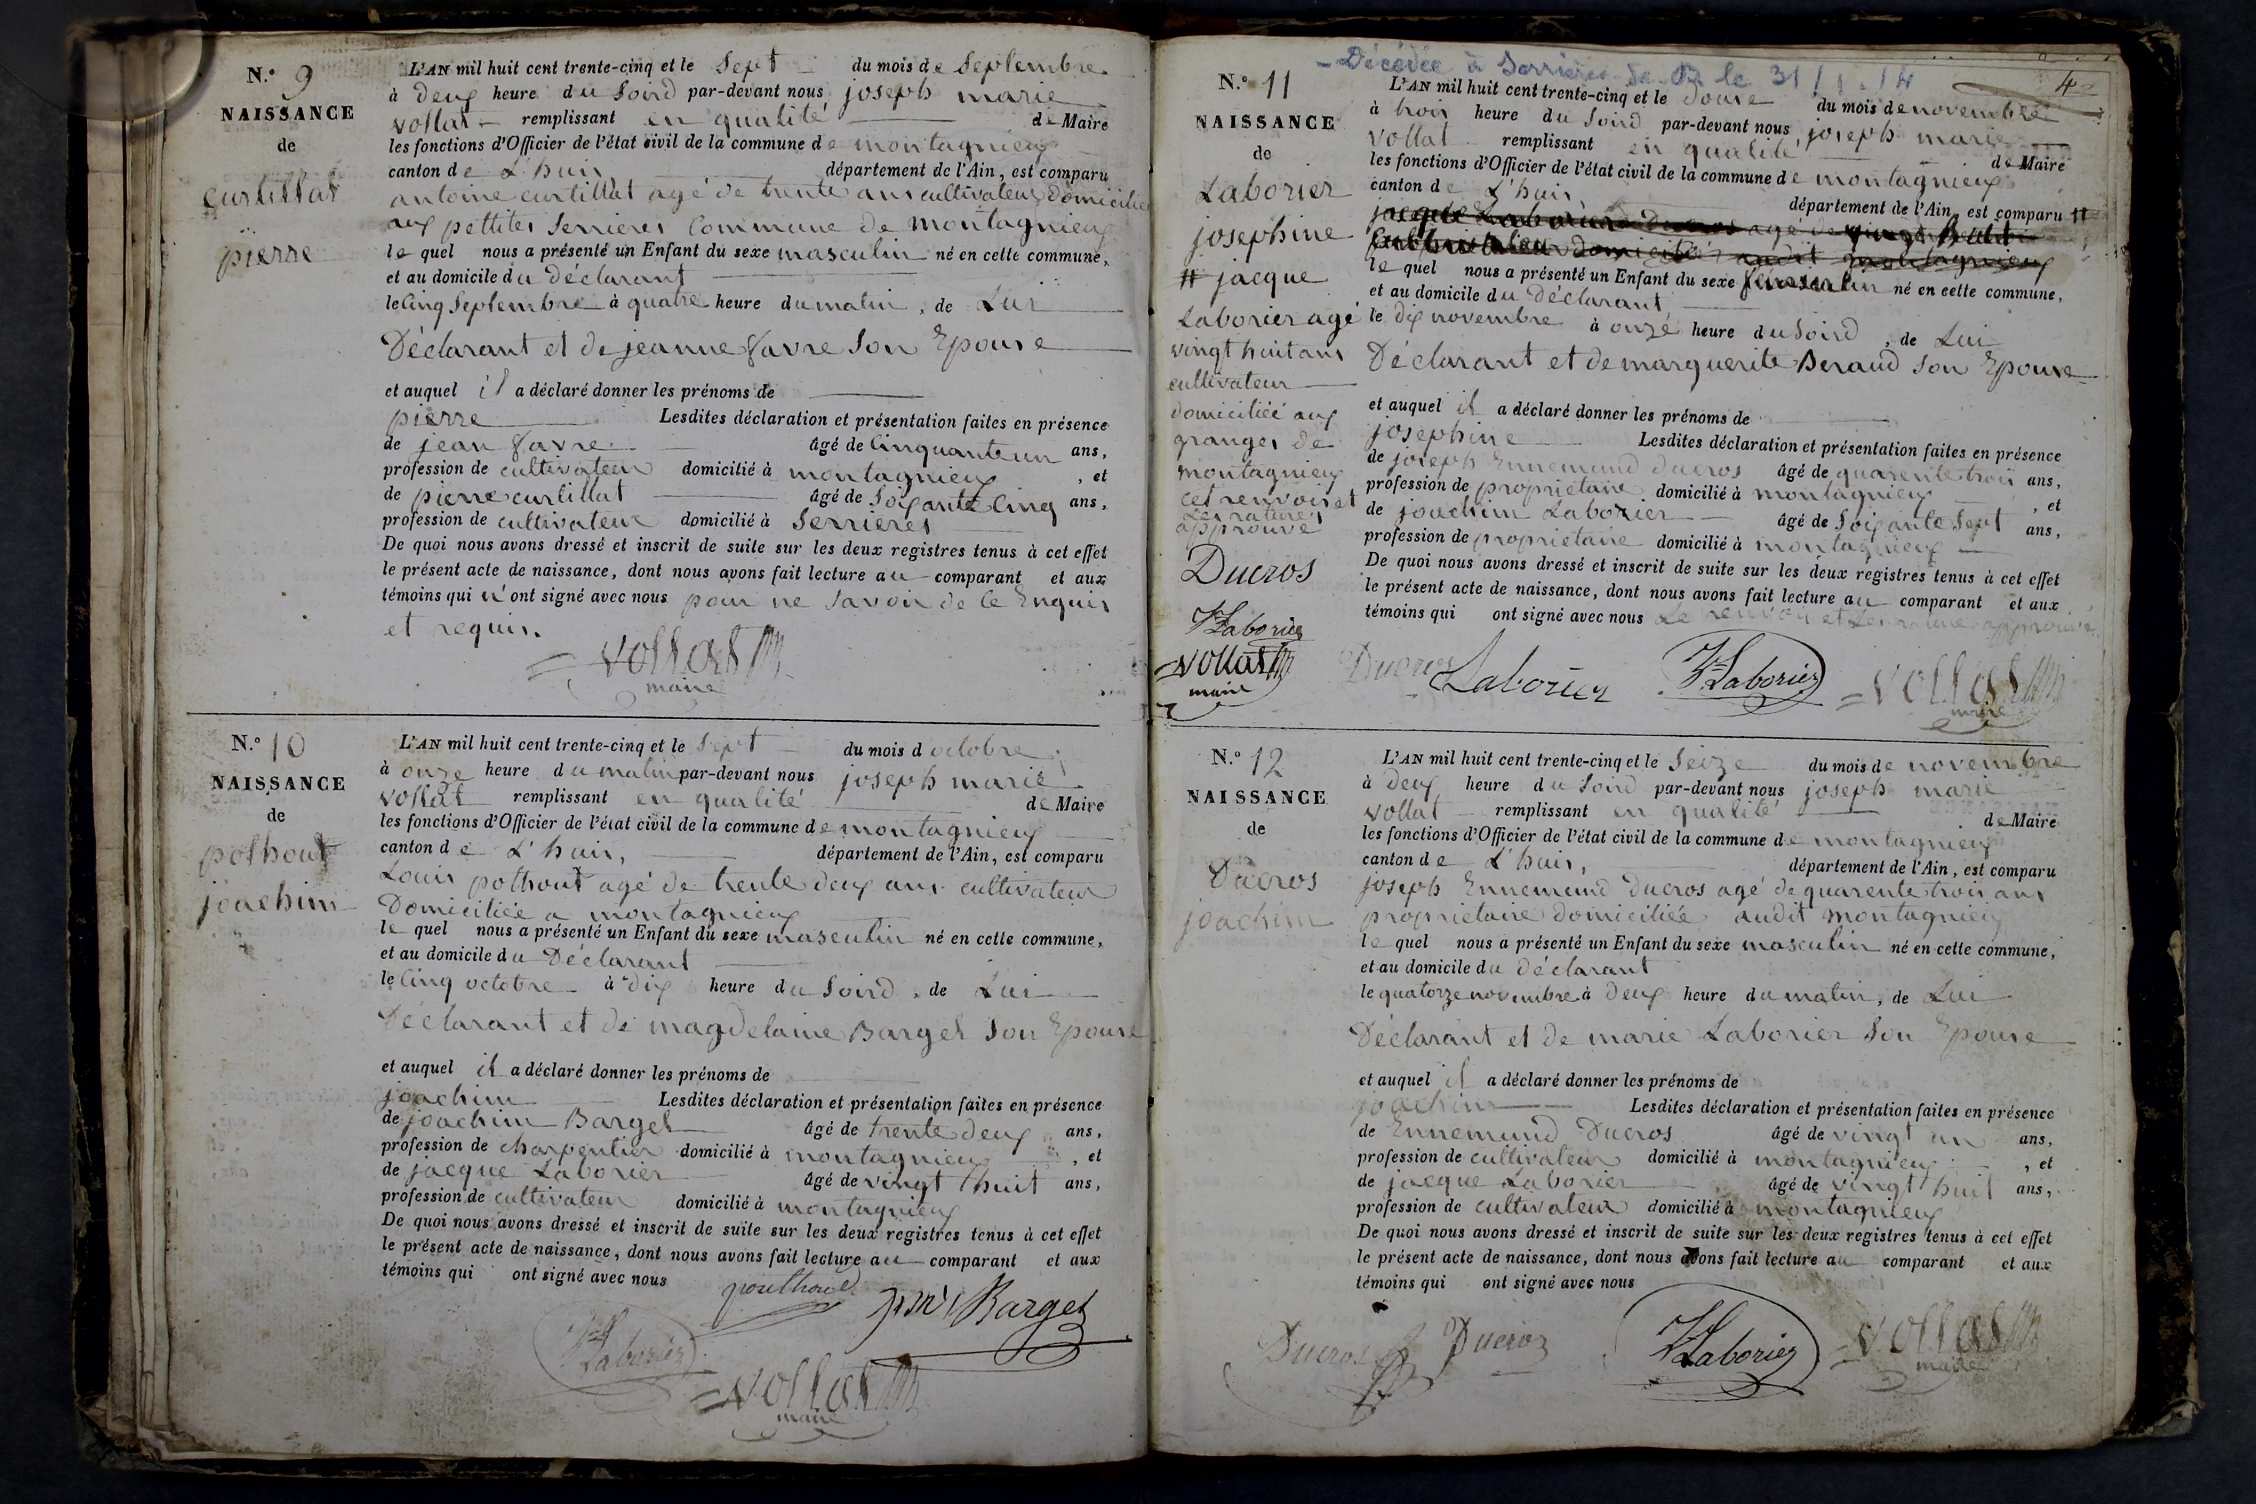 N.o 9
NAISSANCE
de
curtillat
pierre
L'AN mil huit cent trente-cinq et le Sept du mois de Septembre
à deux heure du Soird par-devant nous joseph marie
vollat remplissant en qualité de Maire
les fonctions d'Officier de l'état civil de la commune de montagnieux
canton de L'huis, département de l'Ain, est comparu
antoine curtillat agé de trente ans cultivateur Domicilié
aux pettites Serrieres Commune de montagnieux
le quel nous a présenté un Enfant du sexe masculin né en cette commune,
et au domicile du déclarant
le Cinq Septembre à quatre heure du matin, de Lui
Déclarant et de jeanne favre Son Epouse
et auquel il a déclaré donner les prénoms de
pierre Lesdites déclaration et présentation faites en présence
de jean favre âgé de Cinquante un ans,
profession de cultivateur domicilié à montagnieux, et
de pierre curtillat âgé de Soixante Cinq ans,
profession de cultivateur domicilié à Serrieres
De quoi nous avons dressé et inscrit de suite sur les deux registres tenus à cet effet
le présent acte de naissance, dont nous avons fait lecture au comparant et aux
témoins qui n'ont signé avec nous pour ne Savoir de ce Enquis
et requis.
vollat
maire
N.o 10
NAISSANCE
de
pothout
joachim
L'AN mil huit cent trente-cinq et le Sept du mois d octobre
à onze heure du matin par-devant nous joseph marie
vollat remplissant en qualité de Maire
les fonctions d'Officier de l'état civil de la commune de montagnieux
canton de L'huis, département de l'Ain, est comparu
Louis pothout agé de trente deux ans cultivateur
Domiciliée a montagnieux
le quel nous a présenté un Enfant du sexe masculin né en cette commune,
et au domicile du Déclarant
le Cinq octobre à dix heure du Soird, de Lui
Déclarant et de magdelaine Barget Son Epouse
et auquel il a déclaré donner les prénoms de
joachim Lesdites déclaration et présentation faites en présence
de joachim Barget âgé de trente deux ans,
profession de charpentier domicilié à montagnieux, et
de jacque Laborier âgé de vingt huit ans,
profession de cultivateur domicilié à montagnieux
De quoi nous avons dressé et inscrit de suite sur les deux registres tenus à cet effet
le présent acte de naissance, dont nous avons fait lecture au comparant et aux
témoins qui ont signé avec nous
Barget
Laborier
vollat
maire
Décédée à Serrieres de B. le 31
4
N.o 11
NAISSANCE
de
Laborier
josephine
# jacque
Laborier agé
vingt huit ans
cultivateur
domiciliée aux
granges de
montagnieux
ces renvois et
Les ratures
approuvé
Ducros
Laborier
vollat
maire
L'AN mil huit cent trente-cinq et le douse du mois de novembre
à trois heure du Soird par-devant nous joseph marie
vollat remplissant en qualité de Maire
les fonctions d'Officier de l'état civil de la commune de montagnieux
canton de L'huis département de l'Ain, est comparu #
jacque Laborier agé de vingt huit
domicilié audit montagnieux
le quel nous a présenté un Enfant du sexe né en cette commune,
et au domicile du Déclarant
le dix novembre à onze heure du Soird, de Lui
Déclarant et de marguerite Beraud Son Epouse
et auquel il a déclaré donner les prénoms de
josephine Lesdites déclaration et présentation faites en présence
de joseph Ennemund ducros âgé de quarente trois ans,
profession de propriétaire domicilié à montagnieux, et
de joachim Laborier âgé de Soixante Sept ans,
profession de propriétaire domicilié à montagnieux
De quoi nous avons dressé et inscrit de suite sur les deux registres tenus à cet effet
le présent acte de naissance, dont nous avons fait lecture au comparant et aux
témoins qui ont signé avec nous Le renvoy et Les rature approuvé
Ducros Laborier Laborier vollat
maire
N.o 12
NAISSANCE
de
Ducros
joachim
L'AN mil huit cent trente-cinq et le Seize du mois de novembre
à deux heure du Soird par-devant nous joseph marie
vollat remplissant en qualité de Maire
les fonctions d'Officier de l'état civil de la commune de montagnieux
canton de L'huis, département de l'Ain, est comparu
joseph Ennemund ducros agé de quarente trois ans
propriétaire domiciliée audit montagnieux
le quel nous a présenté un Enfant du sexe masculin né en cette commune,
et au domicile du déclarant
le quatorze novembre à deux heure du matin, de Lui
Déclarant et de marie Laborier Son Epouse
et auquel il a déclaré donner les prénoms de
joachim Lesdites déclaration et présentation faites en présence
de Ennemund Ducros âgé de vingt un ans,
profession de cultivateur domicilié à montagnieux, et
de jacque Laborier âgé de vingt huit ans,
profession de cultivateur domicilié à montagnieux
De quoi nous avons dressé et inscrit de suite sur les deux registres tenus à cet effet
le présent acte de naissance, dont nous avons fait lecture au comparant et aux
témoins qui ont signé avec nous
Ducros Ducros Laborier vollat
maire